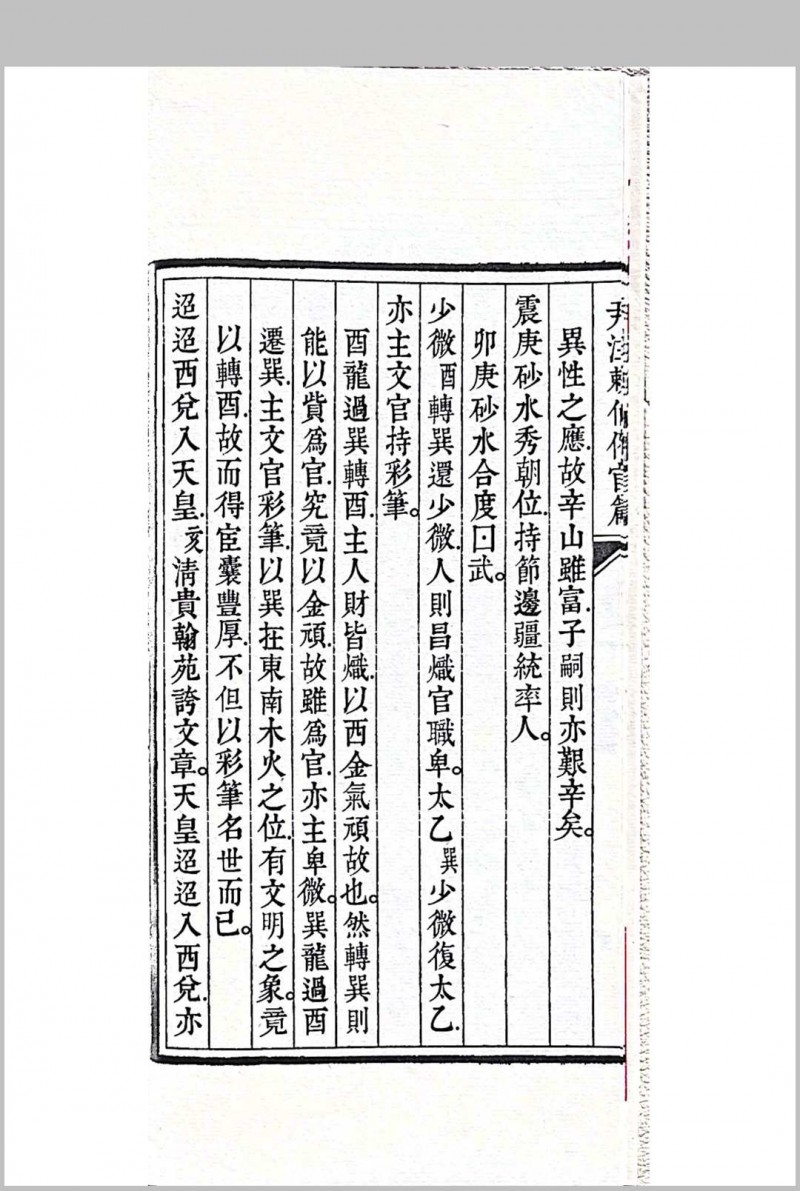 尹注賴仙催官篇
異性之應故辛山雖富子嗣則亦艱辛矣。
震庚砂水秀朝位持節邊疆統率人。
卯庚砂水合度曰武。
少微酉轉巽還少微人則昌熾官職卑。太乙巽少微復太乙
亦主文官持彩筆。
酉龍過巽轉酉主人財皆熾以西金氣頑故也。然轉巽則
能以貲爲官究竟以金頑故雖爲官亦主卑微。巽龍過酉
遷巽主文官彩筆以巽在東南木火之位有文明之象。竟
以轉酉故而得宦囊豐厚不但以彩筆名世而已。
迢迢西兌入天皇亥清貴翰苑誇文章。天皇迢迢入西兌亦